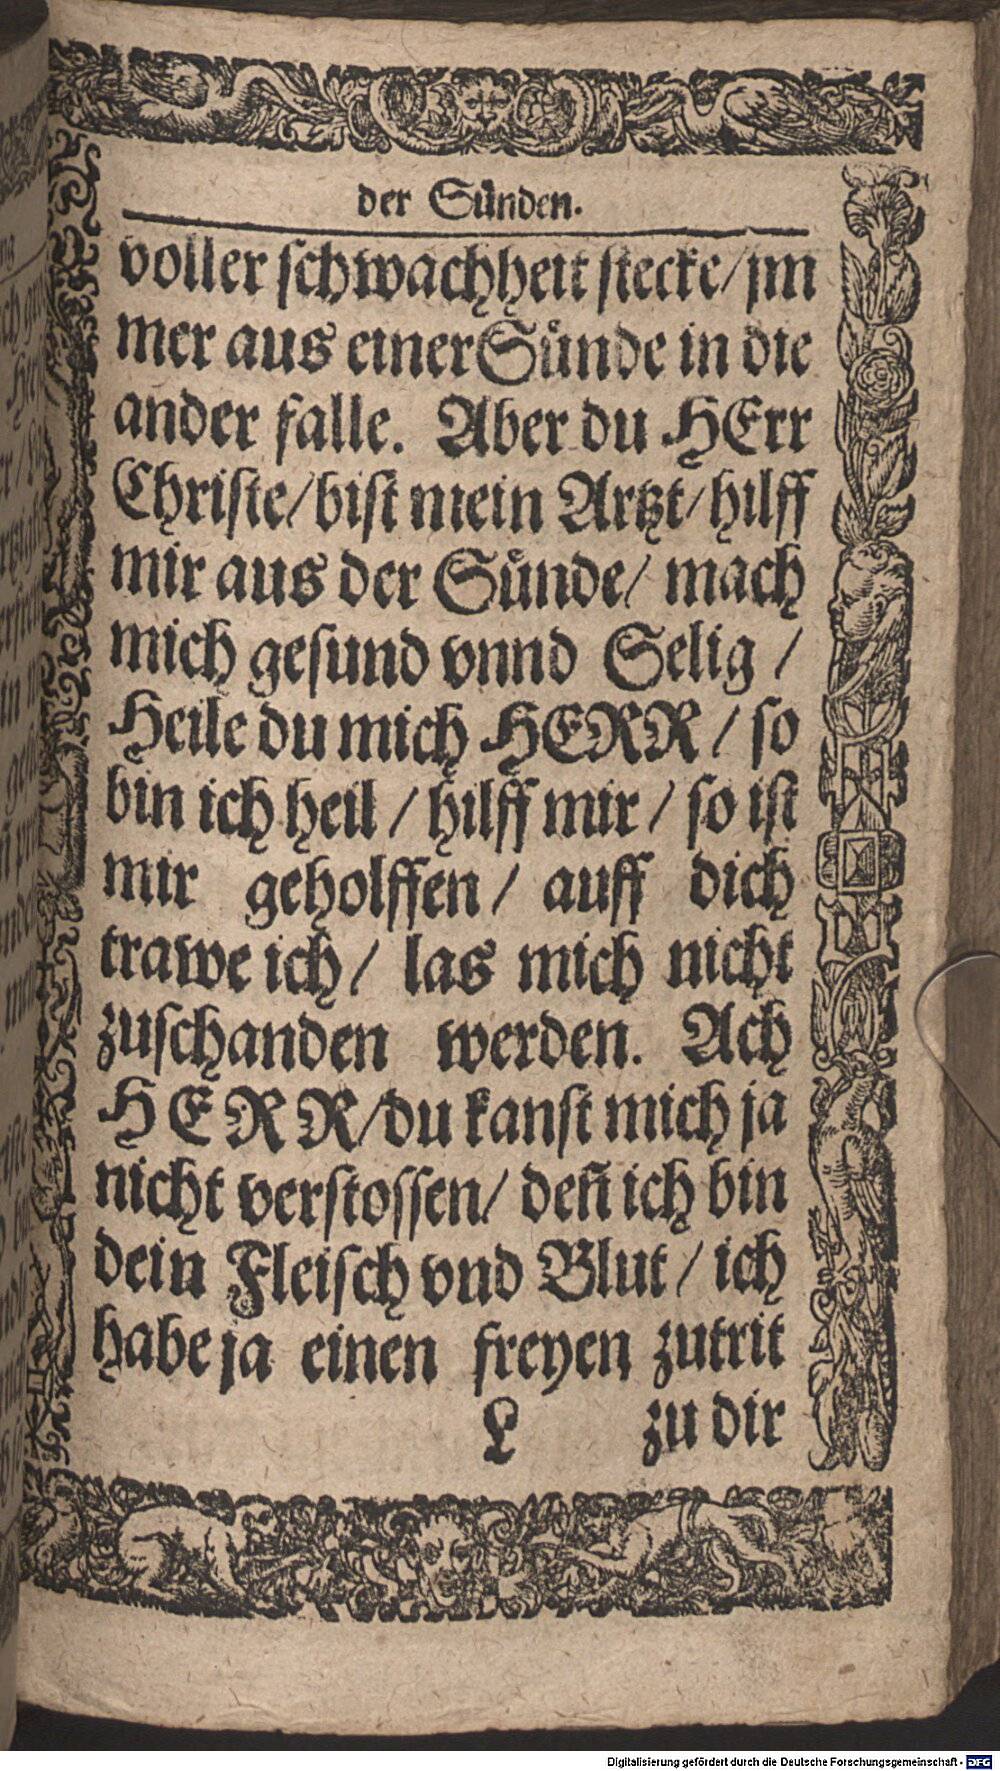 der Sünden.
voller schwachheit stecke/ jm
mer aus einer Sünde in die
ander falle. Aber du HErr
Christe/ bist mein Artzt/ hilff
mir aus der Sünde/ mach
mich gesund vnnd Selig /
Heile du mich HERR / so
bin ich heil / hilff mir / so ist
mir geholffen / auff dich
trawe ich / las mich nicht
zuschanden werden. Ach
HERR/ du kanst mich ja
nicht verstossen/ deñ ich bin
dein Fleisch vnd Blut / ich
habe ja einen freyen zutrit
L zu dir
Digitalisierung gefördert durch die Deutsche Forschungsgemeinschaft - DFG